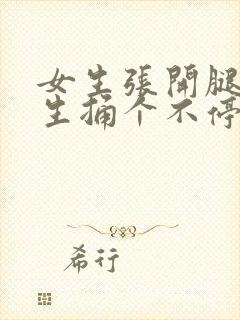 女生張開腿
生捅个不停
希行